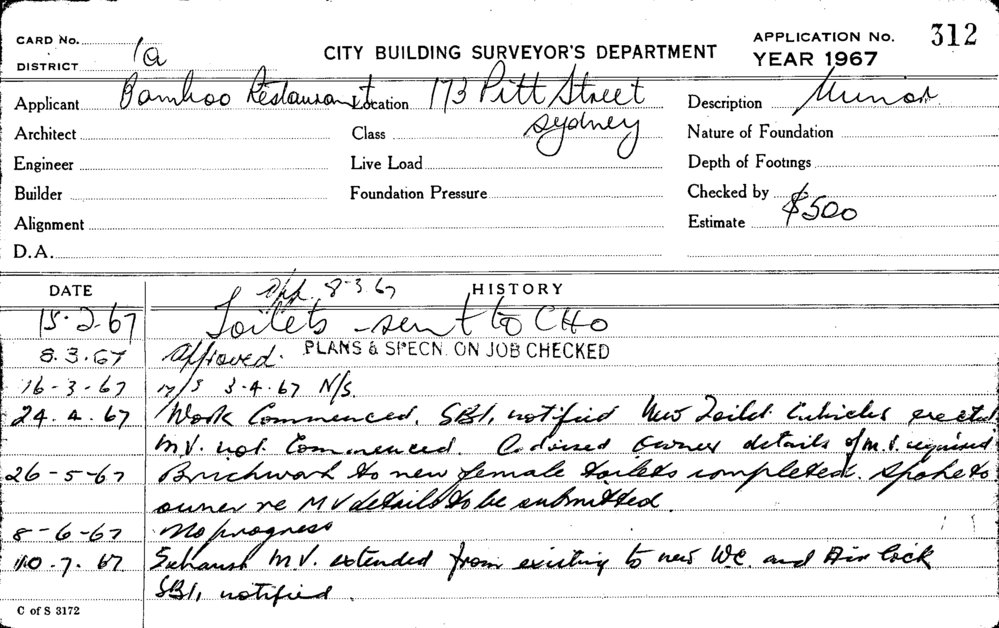 CARD No. 1a
DISTRICT
CITY BUILDING SURVEYOR'S DEPARTMENT
APPLICATION No. 312
YEAR 1967
Applicant Bamboo Restaurant Location 173 Pitt Street Sydney Description Minor
Architect Class Nature of Foundation
Engineer Live Load Depth of Footings
Builder Foundation Pressure Checked by
Alignment Estimate $500
D.A.
DATE HISTORY
App. 8-3.67
15.2.67 Toilets - sent to CHO
8.3.67 Approved. PLANS & SPECN. ON JOB CHECKED
16-3-67 N/S 3-4.67 N/S.
24.4.67 Work Commenced. SBI, notified New Toilet Cubicles erected
M.V. not Commenced. Advised owner details of M.V. required
26-5-67 Brickwork to new female toilets completed. Spoke to
owner re MV details to be submitted.
8-6-67 No progress
10.7.67 Exhaust M.V. extended from existing to new W.C. and Air lock
SBI, notified.
C of S 3172